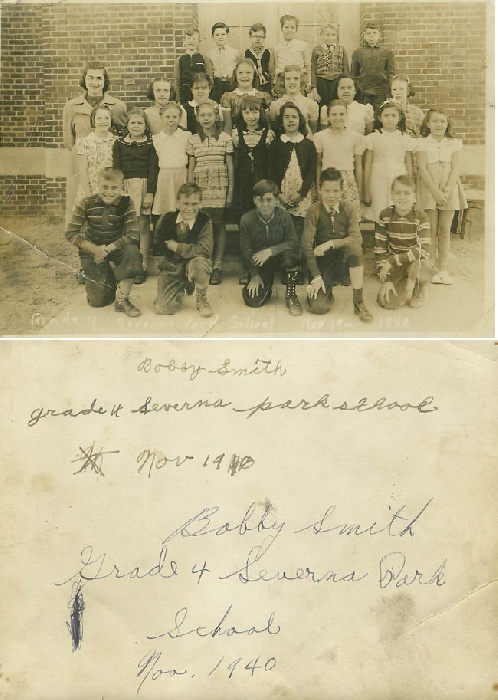 Grade 4 Severna Park School Nov 1940
Bobby Smith
grade 4 Severna park school
Nov 1940
Bobby Smith
Grade 4 Severna Park
School
Nov. 1940